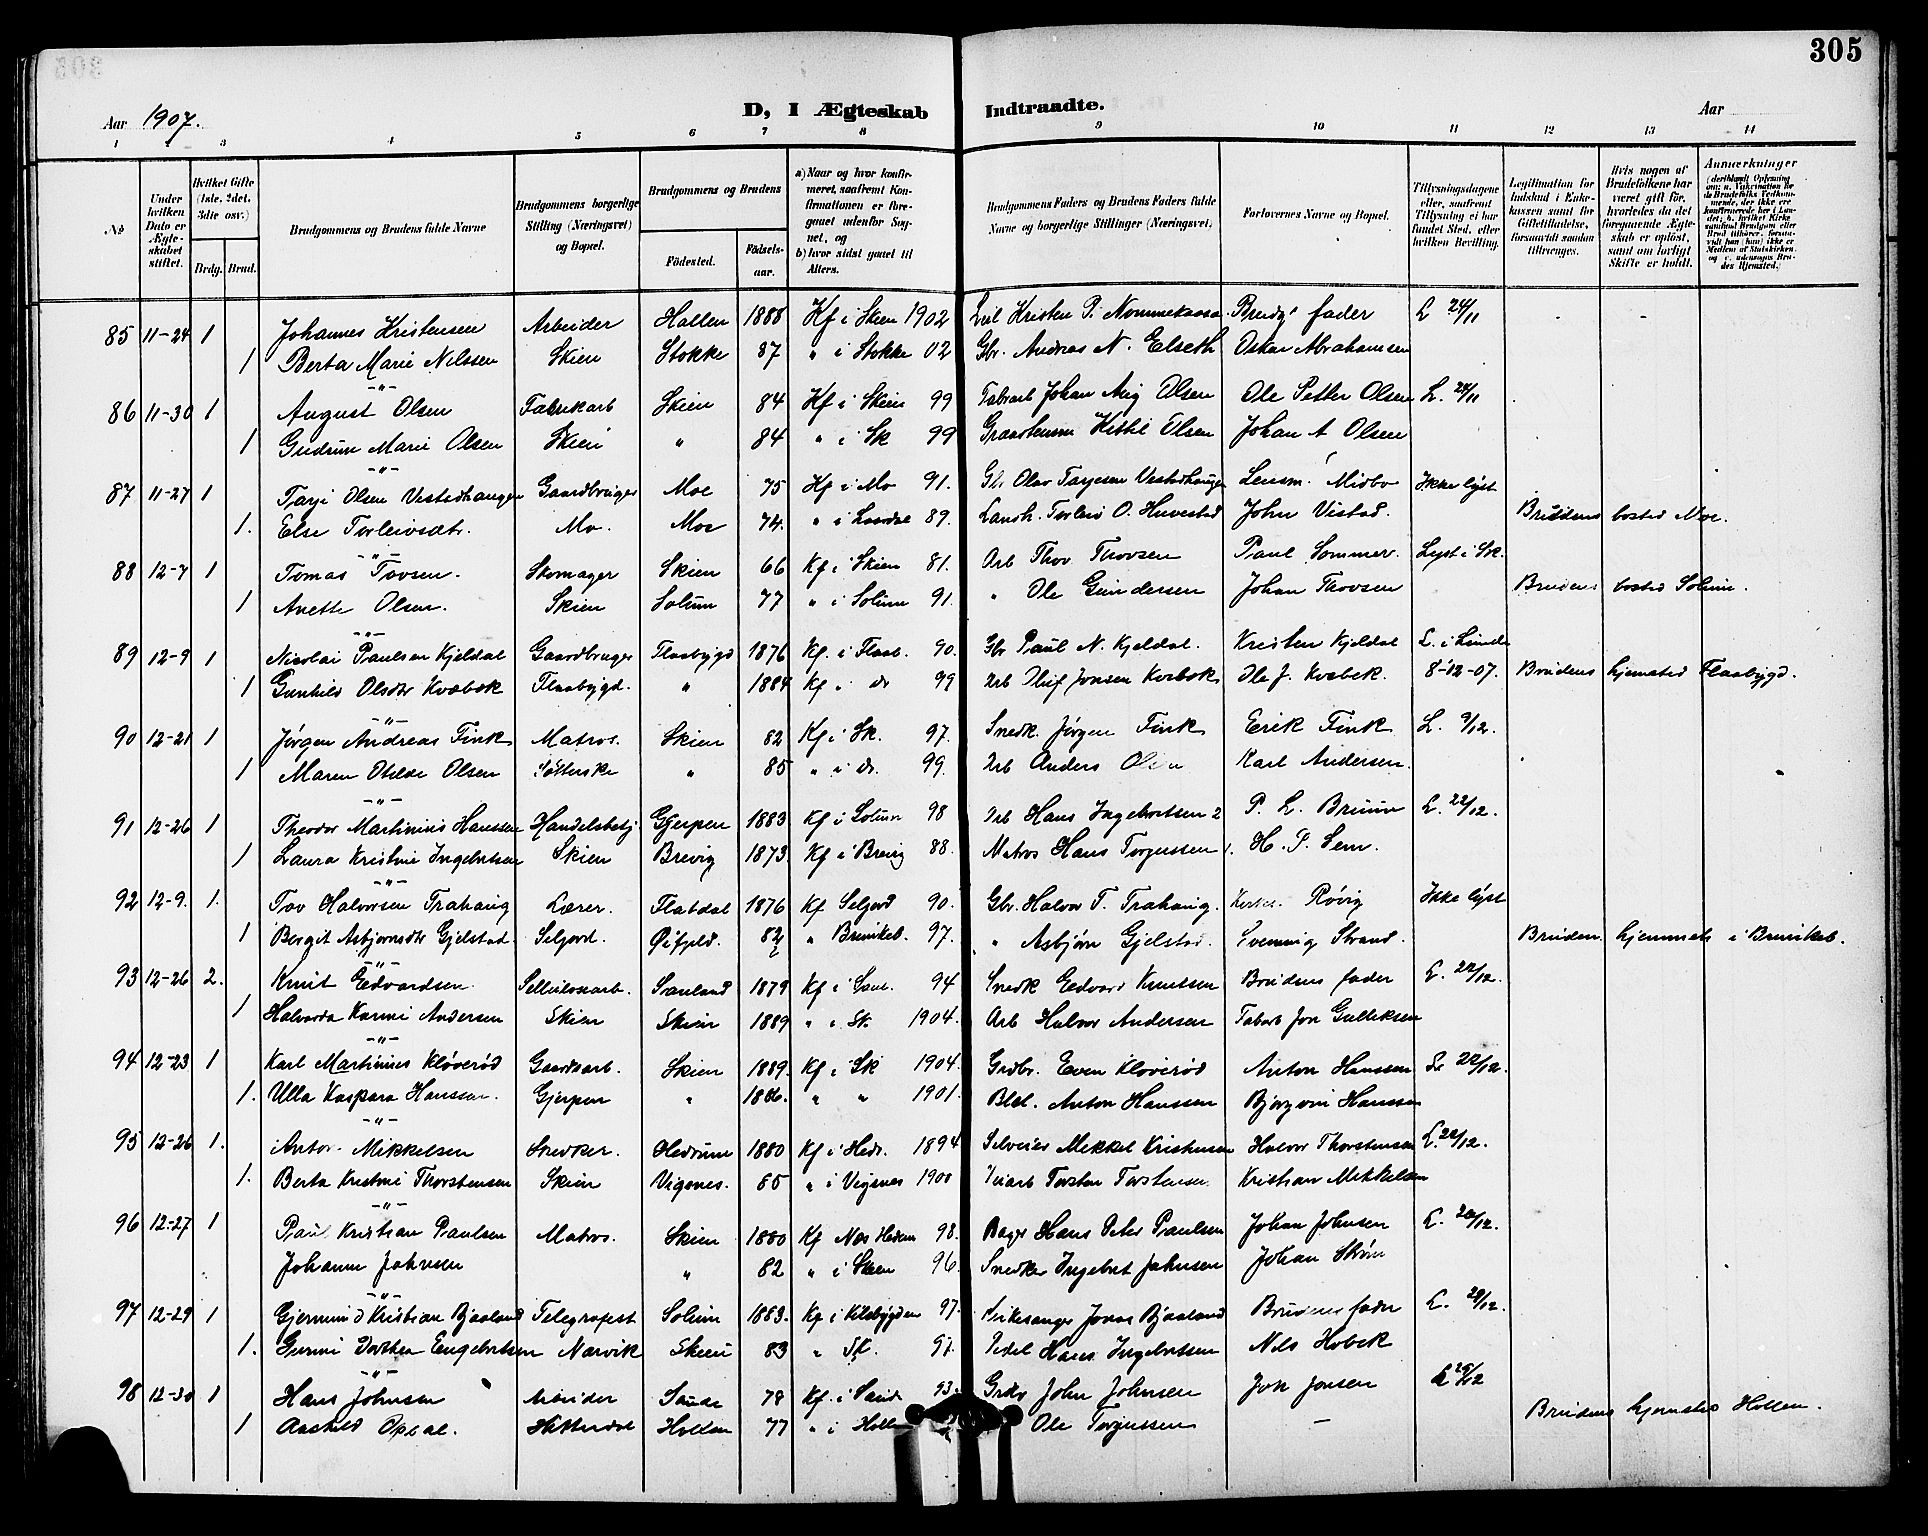 305
Aar 1907.
D, I Ægteskab Indtraadte.
Aar
1 2 3 4 5 6 7 8 9 10 11 12 13 14
No
Under hvilken Dato er Ægteskabet stiftet.
Hvilket Gifte (1ste, 2det, 3die osv.)
Brdg. Brud.
Brudgommens og Brudens fulde Navne
Brudgommens borgerlige Stilling (Næringsvei) og Bopæl.
Brudgommens og Brudens
Fødested. Fødselsaar.
a) Naar og hvor konfirmeret, saafremt Konfirmationen er foregaaet udenfor Sognet, og
b) hvor sidst gaaet til Alters.
Brudgommens Faders og Brudens Faders fulde Navne og borgerlige Stillinger (Næringsvei).
Forlovernes Navne og Bopæl.
Tillysningsdagene eller, saafremt Tillysning ei har fundet Sted, efter hvilken Bevilling.
Legitimation for Indskud i Enkekassen samt for Giftetilladelse, forsaavidt saadan tiltrænges.
Hvis nogen af Brudefolkene har været gift før, hvorledes da det foregaaende Ægteskab er opløst, samt om lovligt Skifte er holdt.
Anmærkninger
85 11-24 1 Johannes Kristensen Arbeider Hollen 1888 Kf i Skien 1902 Kristen P. Brudg. fader L 24/11
1 Berta Marie Nilssen Skien Stokke 87 " i Stokke 02 Gbr. Andreas N. Elseth Oskar Abrahamsen
86 11-30 1 August Olsen Fabrikarb Skien 84 Kf i Skien 99 Fabrarb Johan Aug Olsen Ole Petter Olsen L. 24/11
1 Gudrun Marie Olsen Skien " 84 " i Sk 99 Kittil Olsen Johan A Olsen
87 11-27 1 Tarje Olsen Vestadhaugen Gaardbruger Moe 75 Kf i Mo 91. Gbr Olav Tarjesen Vestadhaugen Lensm. Midbo Ikke lyst
1. Else Torleivsdtr. Mo. Moe 74. " i Laardal 89. Torleiv O. Huvestad John Vistad. Brudens bosted Moe.
88 12-7 1 Tomas Tovsen. Skomager Skien 66 Kf i Skien 81. Arb Thov Thovsen Paul Sommer. Lyst i Sk.
1 Anette Olsen. Skien Solum 77 " i Solum 91. " Ole Gundersen Johan Thovsen Brudens bosted Solum.
89 12-9 1 Nicolai Paulsen Kjeldal Gaardbruger Flaabygd 1876 Kf. i Flaab. 90. Gbr Paul N. Kjeldal. Kristen Kjeldal L. i Lunde
1 Gunhild Olsdtr Kvæbek Flaabygd. " 1884 Kf i do 99 Arb Oluf Jonsen Kvebek Ole J. Kvebek. 8-12-07. Brudens hjemsted Flaabygd.
90 12-21 1 Jörgen Andreas Fink Matros. Skien 82 Kf i Sk. 97. Snedk. Jörgen Fink Eerik Fink L. 9/12.
1 Maren Otilde Olsen " 85 " i do. 99. Arb Anders Olsen Karl Andersen.
91 12-26 1 Theodor Martinius Hanssen Handelsbetj. Gjerpen 1883 Kf i Solum 98 Arb Hans Ingebretsen 2 P. L. Bruun L. 22/12.
1 Laura Kristine Ingebretsen Skien Brevig 1873. Kf i Brevig 88. Matros Hans Torjussen 1. H. P. Sem.
92 12-9. 1. Tov Halvorsen Trahaug Lærer. Flatdal 1876 Kf Seljord 90. Gbr. Halvor T. Trahaug. Rövig Ikke lyst
1 Bergit Asbjornsdtr Gjelstad. Seljord. Øifjeld. 82 " Brunkeb. 97. " Asbjörn Gjelstad. Svennung Strand. Bruden hjemmeh i Brunkeb.
93 12-26 2. Knut Edvardsen Sellulosearb. Sauland 1879 Kf i Saul. 94 Snedk Edvard Knutsen Brudens fader L. 22/12.
1 Halvarda Karine Andersen Skien Skien 1889 " i Sk. 1904. Arb Halvor Andersen Fabarb Jon Gulliksen
94 12-23 1 Karl Martinius Kløverød Gaardsarb. Skien 1889. Kf i Sk 1904. Grdbr. Even Kløverød Anton Hanssen L 22/12.
1. Ulla Kaspara Hanssen. Gjerpen " 1886. " " 1901. Anton Hanssen Bjorgvin Hanssen
95 12-26 1. Anton Mikkelsen Snedker. Hedrum 1880 Kf i Hedr. 1894 Mekkel Kristensen Halvor Thorstensen L. 22/12.
1. Berta Kristine Thorstensen Skien Vigsnes. 85 " i Vigsnes 1900 Torsten Torstensen Kristian Mikkelsen
96 12-27 1 Paul Kristian Paulsen Matros. Skien 1880 Kf Nes Hedem 98. Bager Hans Peter Paulsen Johan Johnsen L. 26/12.
Johanne Johnsen " 82 " i Skien 96. Snedker Ingebret Johnsen Johan Ström
97 12-29 1 Gjermund Kristian Bjaaland Telegrafist Solum 1883. Kf i Kilebygden 97. Kirkesanger Jonas Bjaaland Brudens fader L. 29/12.
1. Gunni Dorthea Engebretsen Narvik Skien 83 " Sk. 97. Pedel Hans Ingebretsen Nils Hobek
98 12-30 1 Hans Johnsen Arbeider Saude 78 Kf. i Saude 93. Grdbr John Johnsen Jon Jonsen L 29/12
1 Aashild Opdal. Hitterdal Hollen 77 " i Hollen Ole Torjussen - Brudens hjemsted Hollen.